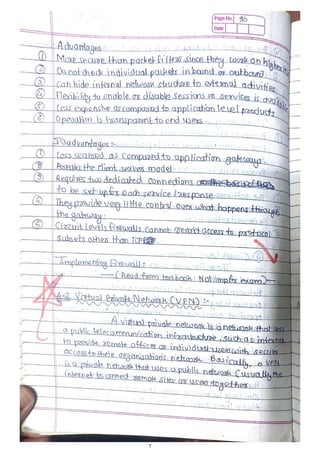 Page No. 90
Date
Advantages
① More secure than packet filters since they work on higher
② Do not check individual packets inbound or outbound.
③ Can hide internal network structure to external activities
④ Flexibility to enable or disable sessions or services is available
⑤ Less expensive as compared to application level products
⑥ Operation is transparent to end users.
Disadvantages :-
① Less secured as compared to application gateways.
② Breaks the client server model.
③ Requires two dedicated connections
to be set up for each service / response.
④ They provide very little control over what happens through
the gateway.
⑤ Circuit levels firewalls cannot restrict access to protocol
subsets other than TCP
Implementing Firewall :-
(Read from textbook. Not imp for exam)
Virtual Private Network (VPN) :-
A virtual private network is a network that uses
a public telecommunication infrastructure, such as internet
to provide remote offices or individual users with secure
access to their organisations network. Basically, a VPN
is a private network that uses a public network (usually the
internet to connect remote sites or users together.
7